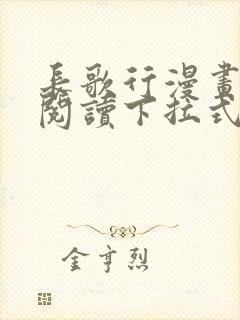 長歌行漫畫
閱讀下拉式
金亨烈